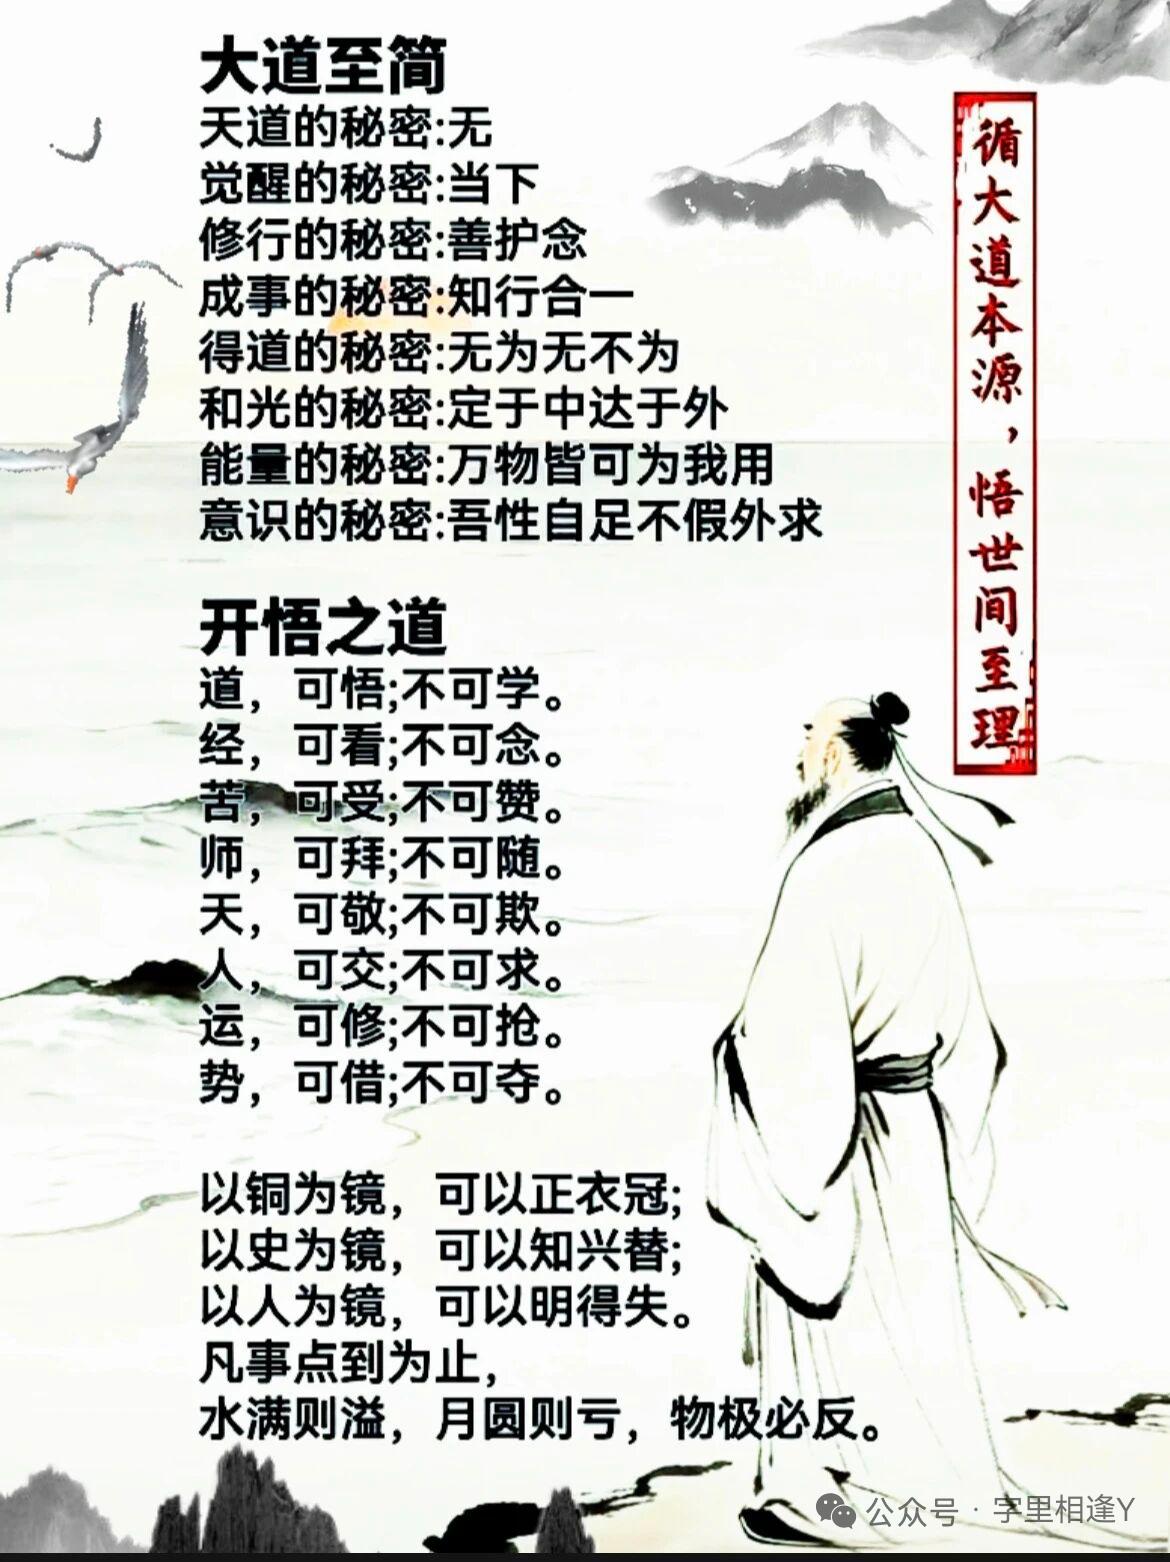 大道至简
天道的秘密:无
觉醒的秘密:当下
修行的秘密:善护念
成事的秘密:知行合一
得道的秘密:无为无不为
和光的秘密:定于中达于外
能量的秘密:万物皆可为我用
意识的秘密:吾性自足不假外求
开悟之道
道，可悟;不可学。
经，可看;不可念。
苦，可受;不可赞。
师，可拜;不可随。
天，可敬;不可欺。
人，可交;不可求。
运，可修;不可抢。
势，可借;不可夺。
以铜为镜，可以正衣冠;
以史为镜，可以知兴替;
以人为镜，可以明得失。
凡事点到为止，
水满则溢，月圆则亏，物极必反。
循大道本源，悟世间至理
公众号·字里相逢Y